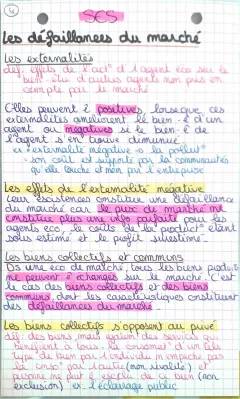 SES
Les défaillances du marché
Les externalités
def: effets de l'act° d'1 agent éco sur le
bien-être d'autres agents non pris en
compte par le marché
Elles peuvent ê positives, lorsque ces
externalités améliorent le bien-ê d'un
agent ou négatives si le bien-ê de
l'agent s'en trouve diminué
ex: externalité négative la pollut°
son coût est supporté par la communauté
qu'elle touche et non par l'entreprise
Les effets de l'externalité négative
Leur existence constitue une défaillance
du marché car le prix du marché ne
constitue plus une info parfaite pour les
agents éco, le coût de la product° étant
sous estimé et le profit surestimé.
Les biens collectifs et communs
Ds une éco de marché, tous les biens produits
ne peuvent ê échangés sur le marché. C'est
le cas des biens collectifs et des biens
communs dont les caractéristiques constituent
des défaillances du marché
Les biens collectifs s'opposent au privé
def: des biens, mais aussi des services qui
bénéficient à tous. la consomat° d'un tel
type de bien par 1 individu n'empêche pas
la conso° par l'autre (non rivalité) et
personne ne peut ê exclu de ce bien (non
exclusion) ex: l'éclairage public